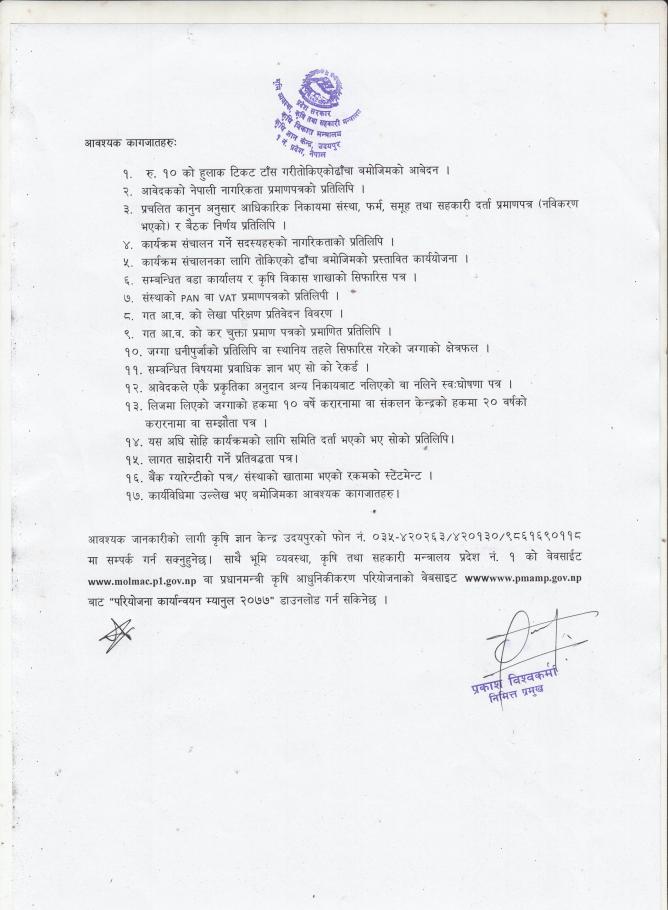 प्रदेश सरकार
भूमि व्यवस्था, कृषि तथा सहकारी मन्त्रालय
कृषि विकास मन्त्रालय
कृषि ज्ञान केन्द्र, उदयपुर
१ नं. प्रदेश, नेपाल
आवश्यक कागजातहरुः
१. रु. १० को हुलाक टिकट टाँस गरीतोकिएकोढाँचा बमोजिमको आबेदन ।
२. आवेदकको नेपाली नागरिकता प्रमाणपत्रको प्रतिलिपि ।
३. प्रचलित कानुन अनुसार आधिकारिक निकायमा संस्था, फर्म, समूह तथा सहकारी दर्ता प्रमाणपत्र (नविकरण
भएको) र बैठक निर्णय प्रतिलिपि ।
४. कार्यक्रम संचालन गर्ने सदस्यहरुको नागरिकताको प्रतिलिपि ।
५. कार्यक्रम संचालनका लागि तोकिएको ढाँचा बमोजिमको प्रस्तावित कार्ययोजना ।
६. सम्बन्धित बडा कार्यालय र कृषि विकास शाखाको सिफारिस पत्र ।
७. संस्थाको PAN वा VAT प्रमाणपत्रको प्रतिलिपी ।
८. गत आ.व. को लेखा परिक्षण प्रतिवेदन विवरण ।
९. गत आ.व. को कर चुक्ता प्रमाण पत्रको प्रमाणित प्रतिलिपि ।
१०. जग्गा धनीपुर्जाको प्रतिलिपि वा स्थानिय तहले सिफारिस गरेको जग्गाको क्षेत्रफल ।
११. सम्बन्धित विषयमा प्रवाधिक ज्ञान भए सो को रेकर्ड ।
१२. आवेदकले एकै प्रकृतिका अनुदान अन्य निकायबाट नलिएको वा नलिने स्वःघोषणा पत्र ।
१३. लिजमा लिएको जग्गाको हकमा १० वर्षे करारनामा वा संकलन केन्द्रको हकमा २० वर्षको
करारनामा वा सम्झौता पत्र ।
१४. यस अघि सोहि कार्यक्रमको लागि समिति दर्ता भएको भए सोको प्रतिलिपि।
१५. लागत साझेदारी गर्ने प्रतिवद्धता पत्र।
१६. बैंक ग्यारेन्टीको पत्र/ संस्थाको खातामा भएको रकमको स्टेटमेन्ट ।
१७. कार्यविधिमा उल्लेख भए बमोजिमका आवश्यक कागजातहरु।
आवश्यक जानकारीको लागी कृषि ज्ञान केन्द्र उदयपुरको फोन नं. ०३५-४२०२६३/४२०१३०/९८६१६९०११८
मा सम्पर्क गर्न सक्नुहुनेछ। साथै भूमि व्यवस्था, कृषि तथा सहकारी मन्त्रालय प्रदेश नं. १ को वेवसाईट
www.molmac.p1.gov.np वा प्रधानमन्त्री कृषि आधुनिकीकरण परियोजनाको वेबसाइट wwwwww.pmamp.gov.np
बाट "परियोजना कार्यान्वयन म्यानुल २०७७" डाउनलोड गर्न सकिनेछ ।
प्रकाश विश्वकर्मा
निमित्त प्रमुख